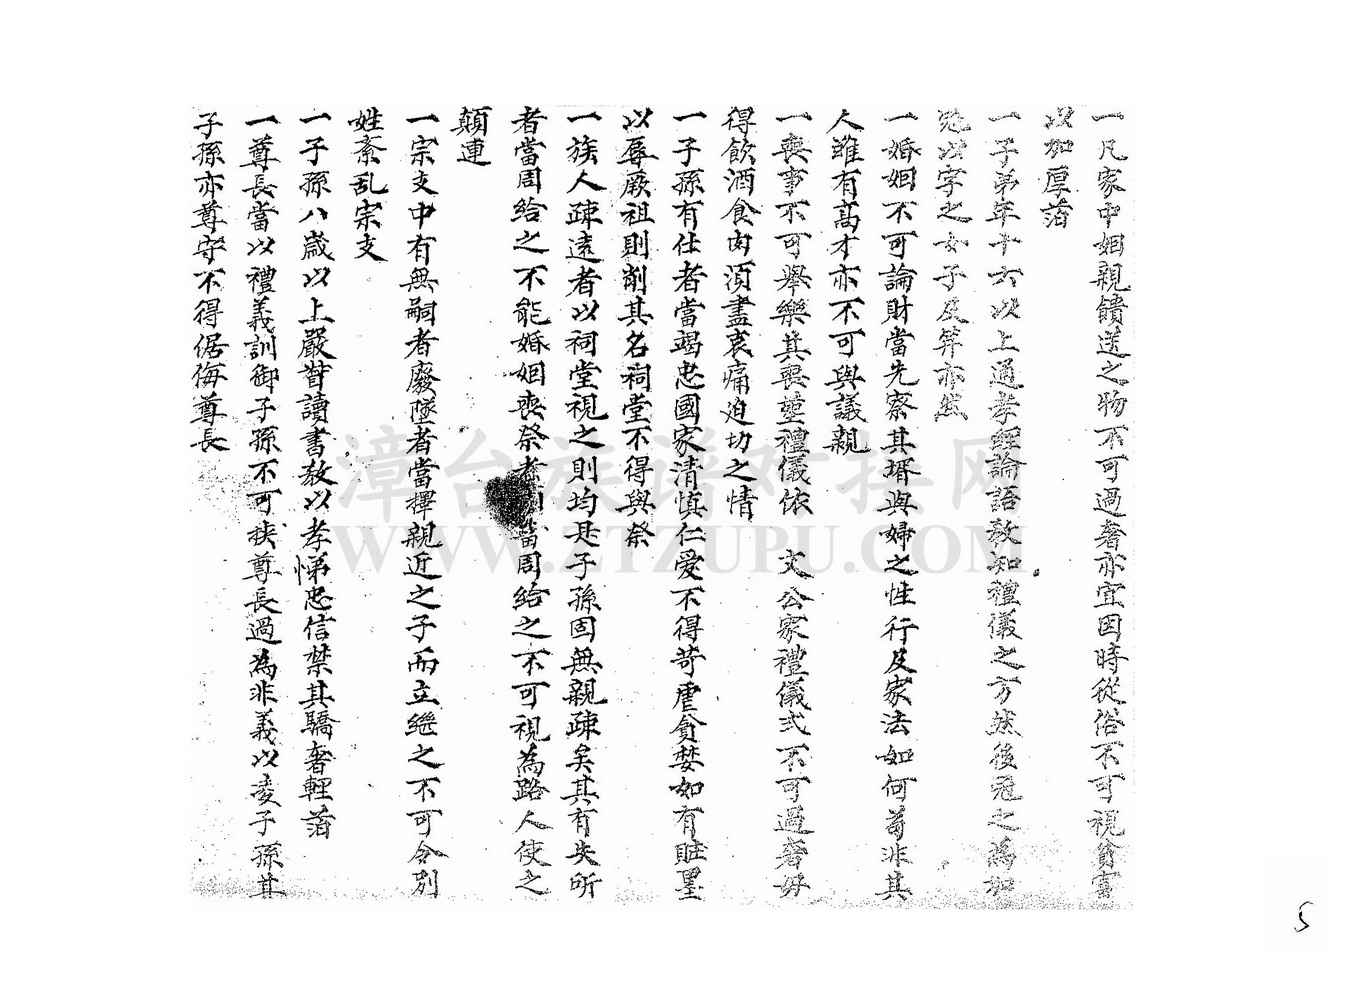 一凡家中姻親饋送之物不可過奢亦宜因時從俗不可視貧富
以加厚薄
一子弟年十六以上通孝經論語教知禮儀之方然後冠之為加
冠以字之女子及笄亦然
一婚姻不可論財當先察其壻與婦之性行及家法如何苟非其
人雖有萬才亦不可與議親
一喪事不可舉樂其喪塟禮儀依 文公家禮儀式不可過奢毋
得飲酒食肉須盡哀痛迫切之情
一子孫有仕者當竭忠國家清慎仁愛不得苛虐貪婪如有賍墨
以辱厥祖則削其名祠堂不得與祭
一族人疎遠者以祠堂視之則均是子孫固無親疎矣其有失所
者當周給之不能婚姻喪祭者 當周給之不可視為路人使之
顛連
一宗支中有無嗣者廢墜者當擇親近之子而立繼之不可令別
姓紊乱宗支
一子孫八歲以上嚴督讀書教以孝悌忠信禁其驕奢輕薄
一尊長當以禮義訓御子孫不可挾尊長過為非義以凌子孫其
子孫亦尊守不得倨侮尊長
漳台族谱对接网
WWW.ZTZUPU.COM
5